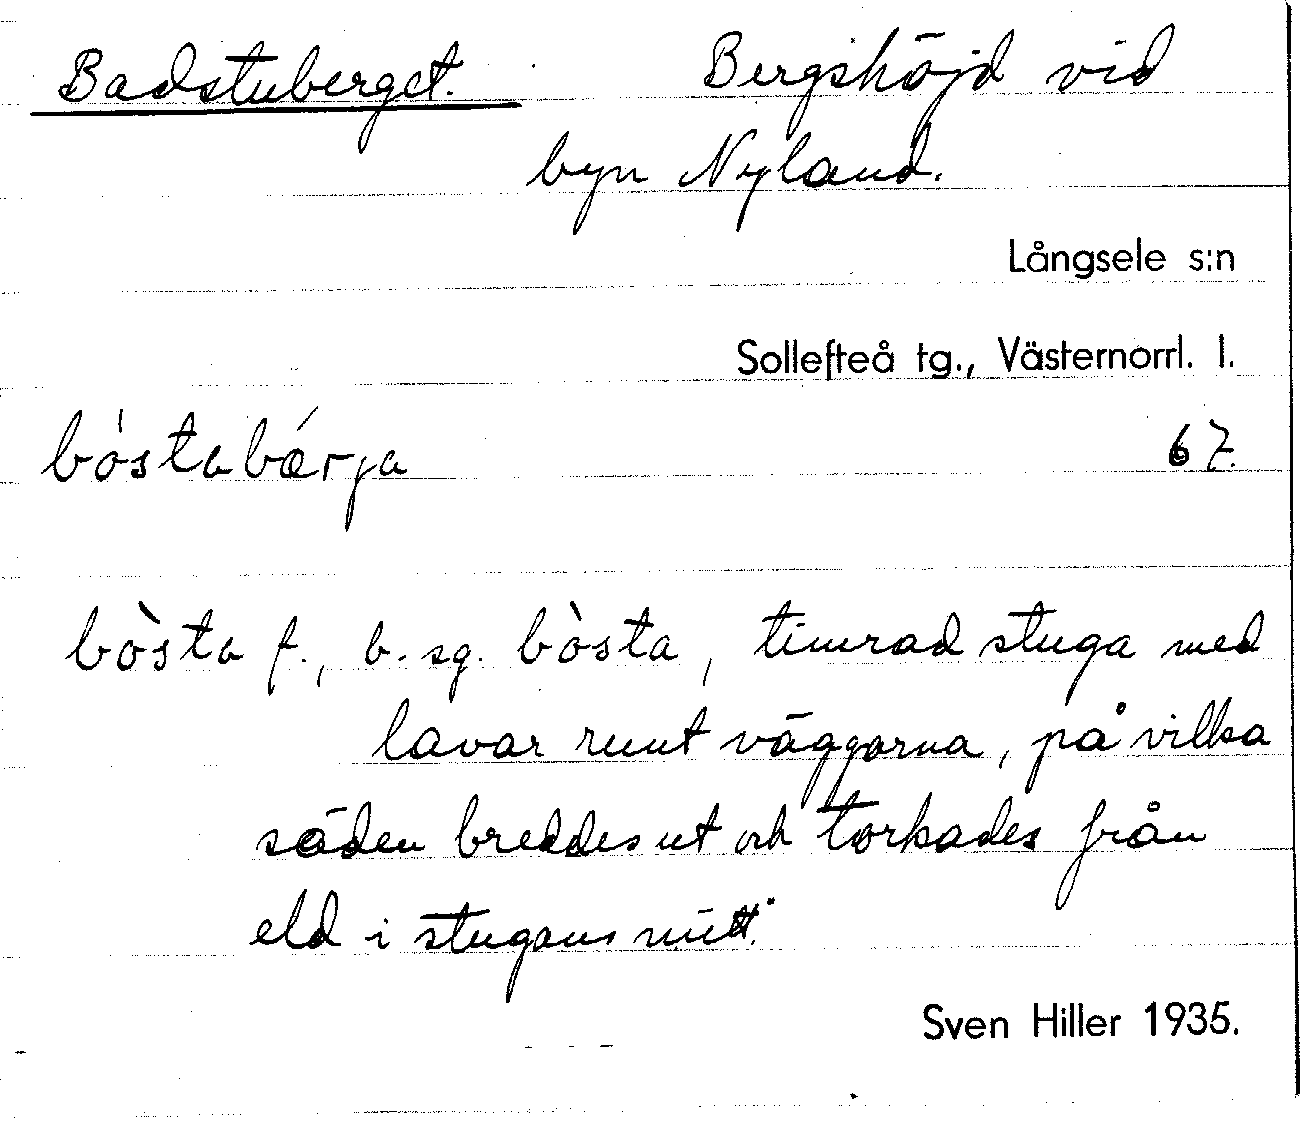 Badstuberget. Bergshöjd vid
byn Nyland.
Långsele s:n
Sollefteå tg., Västernorrl. l.
bóstabérja 67.
bòsta f., b. sg. bòsta, timrad stuga med
lavar runt väggarna, på vilka
säden breddes ut och torkades från
eld i stugans mitt.
Sven Hiller 1935.